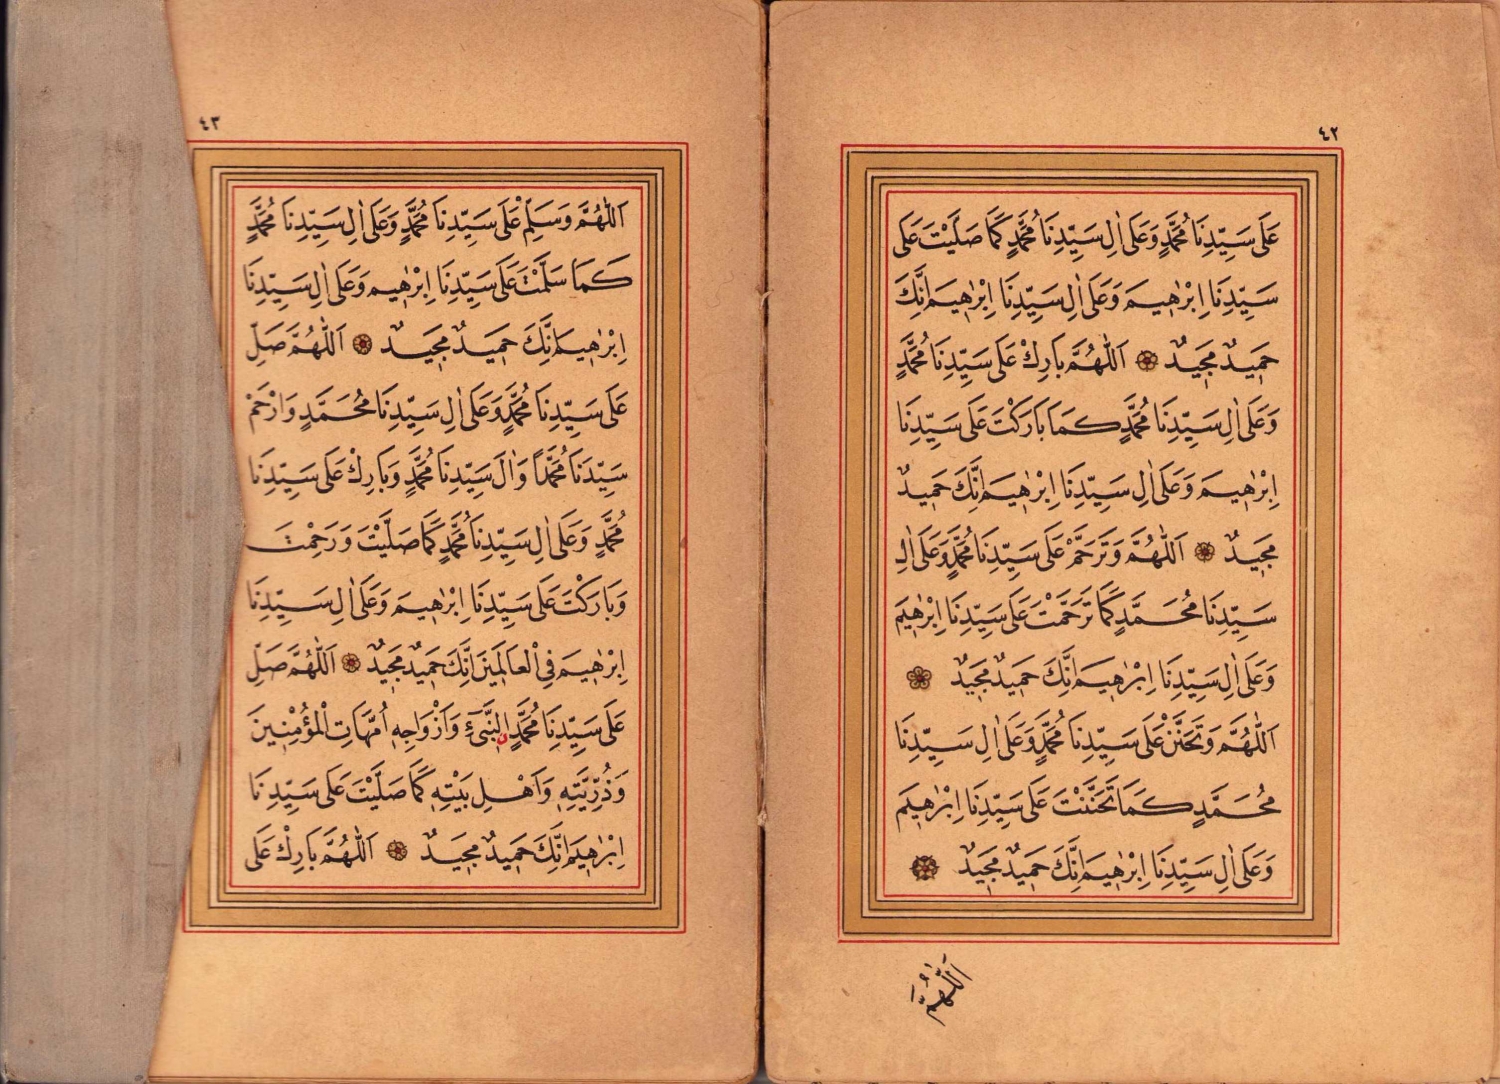 ٤٢
عَلٰى سَيِّدِنَا مُحَمَّدٍ وَعَلٰى اٰلِ سَيِّدِنَا مُحَمَّدٍ كَمَا صَلَّيْتَ عَلٰى
سَيِّدِنَا اِبْرٰهِيمَ وَعَلٰى اٰلِ سَيِّدِنَا اِبْرٰهِيمَ اِنَّكَ
حَمِيدٌ مَجِيدٌ ۞ اَللّٰهُمَّ بَارِكْ عَلٰى سَيِّدِنَا مُحَمَّدٍ
وَعَلٰى اٰلِ سَيِّدِنَا مُحَمَّدٍ كَمَا بَارَكْتَ عَلٰى سَيِّدِنَا
اِبْرٰهِيمَ وَعَلٰى اٰلِ سَيِّدِنَا اِبْرٰهِيمَ اِنَّكَ حَمِيدٌ
مَجِيدٌ ۞ اَللّٰهُمَّ وَتَرَحَّمْ عَلٰى سَيِّدِنَا مُحَمَّدٍ وَعَلٰى اٰلِ
سَيِّدِنَا مُحَمَّدٍ كَمَا تَرَحَّمْتَ عَلٰى سَيِّدِنَا اِبْرٰهِيمَ
وَعَلٰى اٰلِ سَيِّدِنَا اِبْرٰهِيمَ اِنَّكَ حَمِيدٌ مَجِيدٌ ۞
اَللّٰهُمَّ وَتَحَنَّنْ عَلٰى سَيِّدِنَا مُحَمَّدٍ وَعَلٰى اٰلِ سَيِّدِنَا
مُحَمَّدٍ كَمَا تَحَنَّنْتَ عَلٰى سَيِّدِنَا اِبْرٰهِيمَ
وَعَلٰى اٰلِ سَيِّدِنَا اِبْرٰهِيمَ اِنَّكَ حَمِيدٌ مَجِيدٌ ۞
اَللّٰهُمَّ
٤٣
اَللّٰهُمَّ وَسَلِّمْ عَلٰى سَيِّدِنَا مُحَمَّدٍ وَعَلٰى اٰلِ سَيِّدِنَا مُحَمَّدٍ
كَمَا سَلَّمْتَ عَلٰى سَيِّدِنَا اِبْرٰهِيمَ وَعَلٰى اٰلِ سَيِّدِنَا
اِبْرٰهِيمَ اِنَّكَ حَمِيدٌ مَجِيدٌ ۞ اَللّٰهُمَّ صَلِّ
عَلٰى سَيِّدِنَا مُحَمَّدٍ وَعَلٰى اٰلِ سَيِّدِنَا مُحَمَّدٍ وَارْحَمْ
سَيِّدَنَا مُحَمَّدًا وَاٰلَ سَيِّدِنَا مُحَمَّدٍ وَبَارِكْ عَلٰى سَيِّدِنَا
مُحَمَّدٍ وَعَلٰى اٰلِ سَيِّدِنَا مُحَمَّدٍ كَمَا صَلَّيْتَ وَرَحِمْتَ
وَبَارَكْتَ عَلٰى سَيِّدِنَا اِبْرٰهِيمَ وَعَلٰى اٰلِ سَيِّدِنَا
اِبْرٰهِيمَ فِي الْعَالَمِينَ اِنَّكَ حَمِيدٌ مَجِيدٌ ۞ اَللّٰهُمَّ صَلِّ
عَلٰى سَيِّدِنَا مُحَمَّدٍ النَّبِيِّ وَاَزْوَاجِهِ اُمَّهَاتِ الْمُؤْمِنِينَ
وَذُرِّيَّتِهِ وَاَهْلِ بَيْتِهِ كَمَا صَلَّيْتَ عَلٰى سَيِّدِنَا
اِبْرٰهِيمَ اِنَّكَ حَمِيدٌ مَجِيدٌ ۞ اَللّٰهُمَّ بَارِكْ عَلٰى